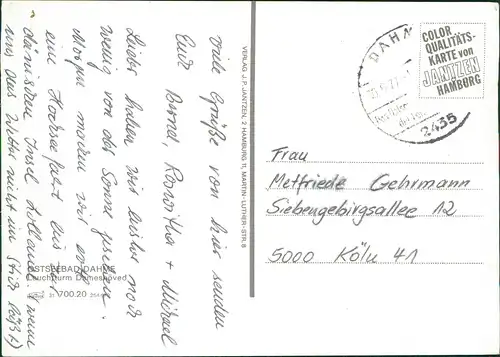 viele Grüße von hier senden
Euch Bernd, Roswitha + Michael
Leider haben wir bisher noch
wenig von der Sonne gesehen.
Morgen machen wir
eine Hochseefahrt bis zur
dänischen Insel Lolland. (wenn
uns das Wetter nicht im Stich läßt)
OSTSEEBAD DAHME
Leuchtturm Dameshöved
21 700.20
VERLAG J. P. JANTZEN, 2 HAMBURG 11, MARTIN-LUTHER-STR. 8
DAHM
2435
COLOR
QUALITÄTS-
KARTE von
JANTZEN
HAMBURG
Frau
Metfriede Gehrmann
Siebengebirgsallee 12
5000 Köln 41